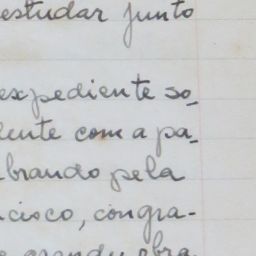 estudar junto
expediente so-
ente com a pa-
brando pela
cisco, congra-
grande obra